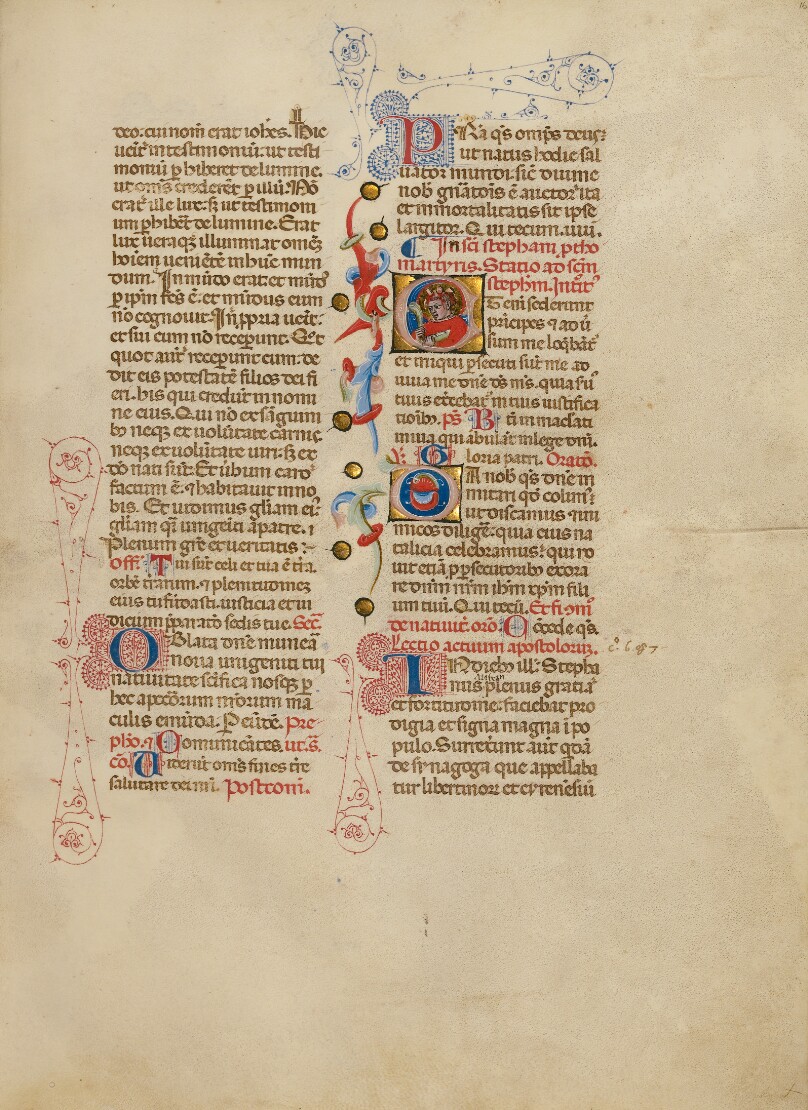 deo. cui nom̄ erat ioħes. Hic
uēit in testimoniū. ut testi
moniū ꝑhiberet de lumine.
ut om̄s crederēt ꝑ illū. Nō
erat ille lux. sꝫ ut testimoni
um ꝑhibēt de lumine. Erat
lux uera qꝫ illuminat omēꝫ
hoiem ueniētē in huīc mun
dum. In mūdo erat et mūdꝰ
ꝑ ipm̄ fcs̄ ē. et mūdus eum
nō cognouit. In ppria uēit.
et sui eum nō receperunt. Qꝫt
quot aut̄ receperunt eum. de
dit eis potestatē filios dei fi
eri. his qui credūt in nomi
ne eius. Qui nō ex sāguini
bꝫ neqꝫ ex uolūtate carnis.
neqꝫ ex uolūtate uiri. sꝫ ex
dō nati sūt. Et ūbum caro
factum ē. ⁊ habitauit in no
bis. Et uidimus gliam eiꝰ
gliam qi unigeiti a patre. ⁊
plenum grē et ueritatis :
Off. Tui sūt celi et tua ē tr̄a.
orbē tr̄arum. ⁊ plenitudinez
eius tu fūdasti. iusticia et iu
dicium pparatō sedis tue. Sec̄.
OBlata dn̄e munēa
noua unigeniti tui
natiuitate scīfica nosqꝫ ꝑ
hec a pcc̄orum nr̄orum ma
culis emūda. Ꝑ eūdē. Pre
pħo. ⁊ Comunicātes. ut. s̄.
cō. Uiderūt om̄s fines tr̄e
salutare dei nr̄i. Postcom̄.
PRa qs̄ omps̄ deus.
ut natus hodie sal
uator mundi. sic̄ diuine
nob̄ gn̄atōis ē auctor. ita
et immortalitatis sit ipse
largitor. Q. ui tecum. uiui.
In sc̄i stephani ptho
martyris. Statio ad sc̄m
stephm̄. Introit̄
ETenī sederunt
prīcipes ⁊ ad ū
sum me loqb̄āt̄
et iniqui ꝑsecuti sūt me. ad
iuua me dn̄e d̄s m̄s. quia ſu
tuus exercebat̄ in tuis iustifica
tioībꝫ. ps̄ Bt̄i īmaclati
in uia qui ābulāt in lege dn̄i.
V. Gloria patri. Oratō.
DA nob̄ qs̄ dn̄e im
mitari qd̄ colim.
ut discamus ⁊ ini
micos diligē. quia eius na
talicia celebramus. qui no
uit etiā ꝑ ꝑsecutoribꝫ exora
re dn̄m nr̄m ihm̄ xp̄m fili
um tuū. Q. ui tecū. Et fi ⁊ m̄
de natiuit̄. orō. Concede qs̄.
Lectio actuum apostolorum. c̄. 6. ⁊ 7
IN diebꝫ ill. Stepha
nus plenus gratia
et fortitudine. faciebat pro
digia et signa magna ī po
pulo. Surrexūnt aut̄ qdā
de synagoga que appellaba
tur libertinoꝝ et cyrenēsiū